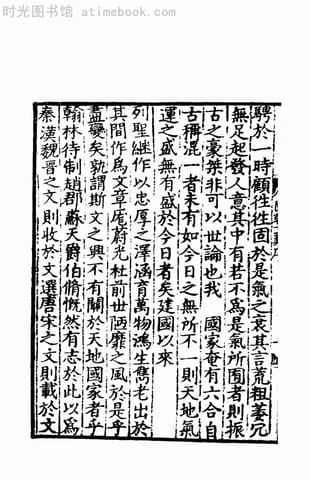 时光图书馆 - atimebook.com
騁於一時顧徃徃固於是氣之衰其言荒粗萎冗
無足起發人意其中有若不為是氣所囿者則振
古之豪桀非可以世論也我　國家奄有六合自
古稱混一者未有如今日之無所不一則天地氣
運之盛無有盛於今日者矣建國以來
列聖繼作以忠厚之澤涵育萬物鴻生雋老出於
其間作為文章庬蔚光杜前世陋靡之風於是乎
盡變矣孰謂斯文之興不有關於天地國家者乎
翰林待制趙郡蘇天爵伯脩慨然有志於此以為
秦漢魏晉之文則收於文選唐宋之文則載於文